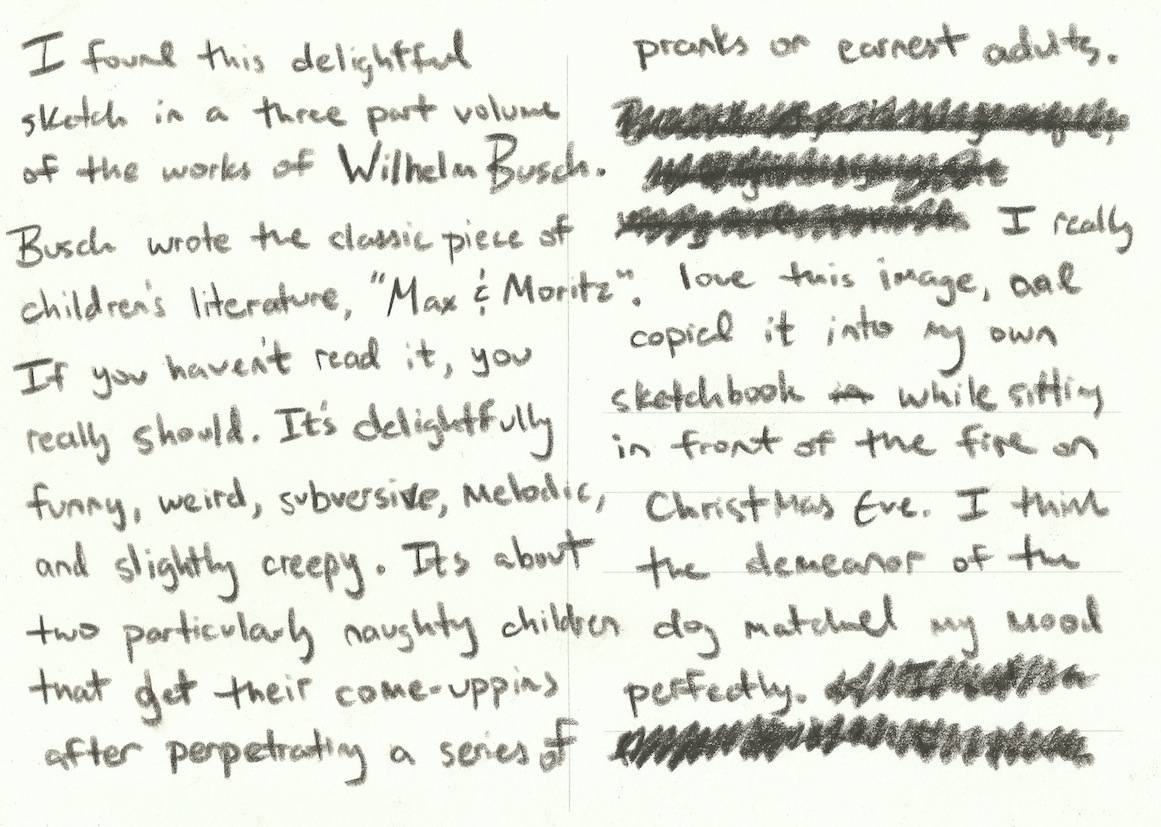 I found this delightful
sketch in a three part volume
of the works of Wilhelm Busch.
Busch wrote the classic piece of
children's literature, "Max & Moritz".
If you haven't read it, you
really should. It's delightfully
funny, weird, subversive, melodic,
and slightly creepy. Its about
two particularly naughty children
that get their come-uppins
after perpetrating a series of
pranks on earnest adults.
I really
love this image, and
copied it into my own
sketchbook in while sitting
in front of the fire on
Christmas Eve. I think
the demeanor of the
dog matched my mood
perfectly.